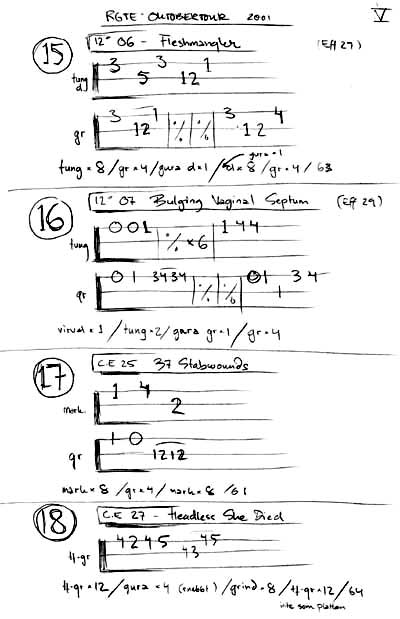 RGTE - OKTOBERTOUR 2001 V
15 12" 06 - Fleshmangler (Eff 27)
3 3 1
tung
5 12
3 1 3 4
gr 12 % % 12
gura × 1
tung × 8 / gr × 4 / gura d × 1 / × 8 / gr × 4 / 63
16 12" 07 Bulging Vaginal Septum (Eff 29)
0 0 1 1 4 4
tung % × 6
0 1 3434 01 3 4
gr % % 1
virvel × 1 / tung × 2 / gura gr × 1 / gr × 4
17 C.E 25 37 Stabwounds
1 4
mork. 2
1 0
gr 1212
mork × 8 / gr × 4 / mork × 8 / 61
18 C.E 27 - Headless She Died
4 2 4 5 45
ff-gr 43
ff-gr × 12 / gura × 4 (snabbt) / grind × 8 / ff-gr × 12 / 64
inte som plattan